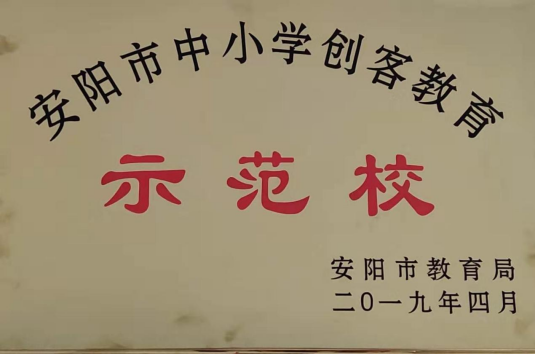 安阳市中小学创客教育
示范校
安阳市教育局
二0一九年四月